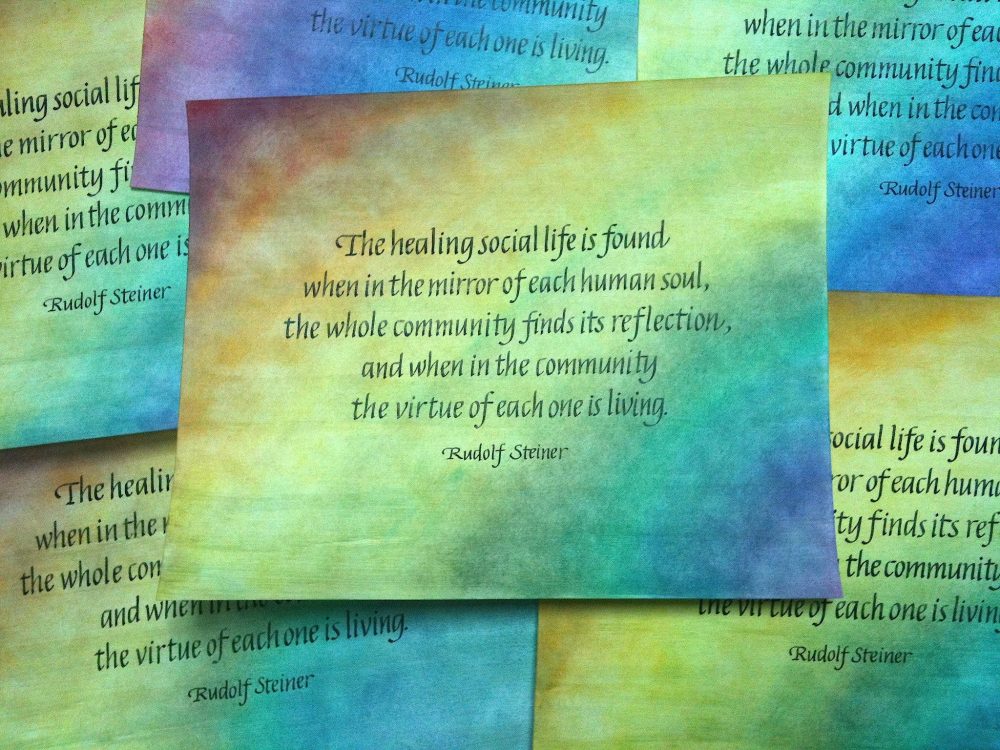 n the community
the virtue of each one is living.
Rudolf Steiner
when in the mirror of ea
the whole community find
d when in the com
virtue of each one
Rudolf Steiner
aling social lif
e mirror of ea
ommunity fi
when in the comm
virtue of each one is
Rudolf Steiner
The healing social life is found
when in the mirror of each human soul,
the whole community finds its reflection,
and when in the community
the virtue of each one is living.
Rudolf Steiner
The healin
when in the
the whole con
and when in the
the virtue of each one is living.
Rudolf Steiner
social life is foun
ror of each huma
ity finds its ref
the community
the virtue of each one is livin
Rudolf Steiner